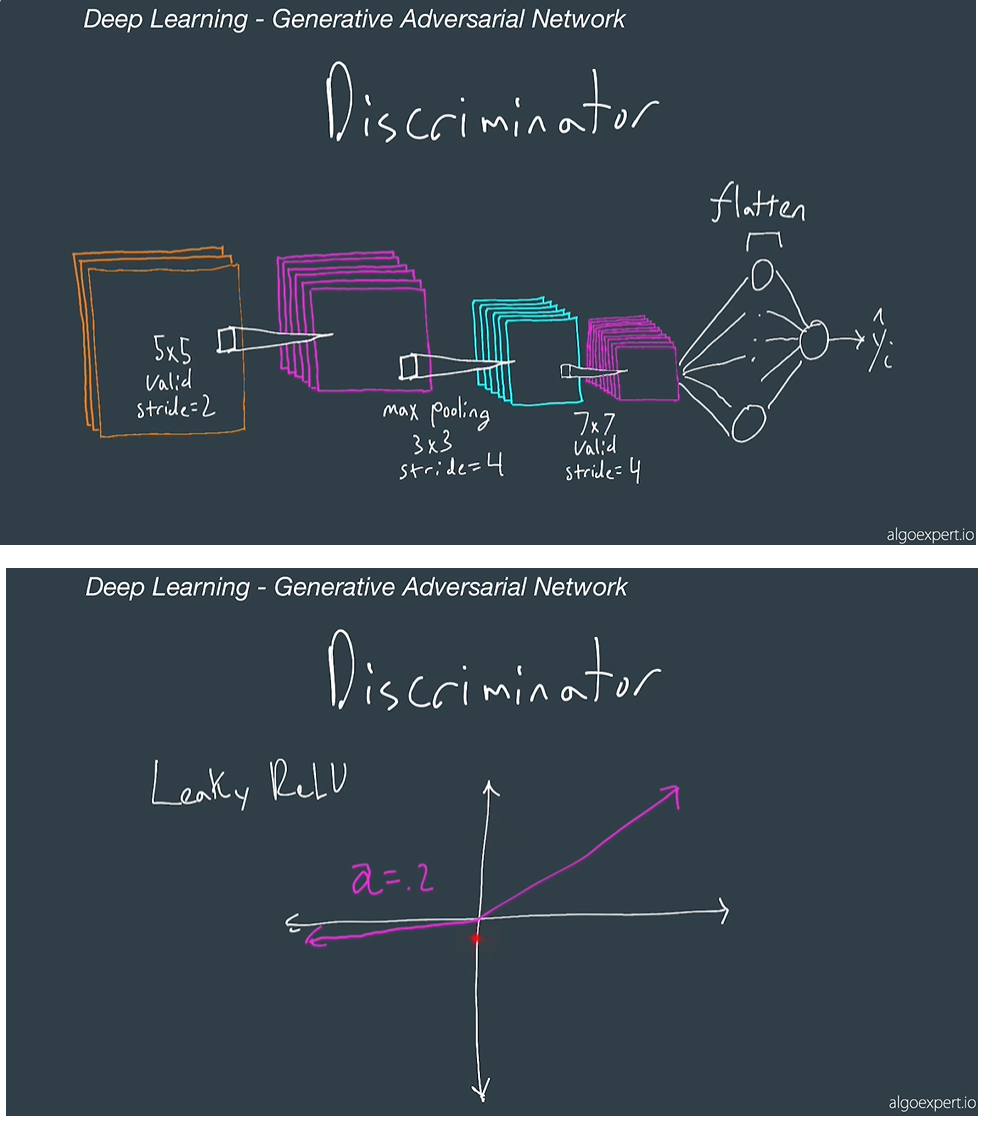 Deep Learning - Generative Adversarial Network
Discriminator
flatten
5x5
valid
stride=2
max pooling
3x3
stride=4
7x7
valid
stride=4
ŷᵢ
algoexpert.io
Deep Learning - Generative Adversarial Network
Discriminator
Leaky ReLU
a=.2
algoexpert.io